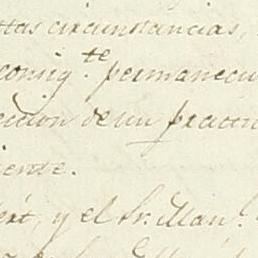 ttas circunstancias,
consig.te permanecu
ccion de un practi
iente.
bert, y el Sr. Man.l